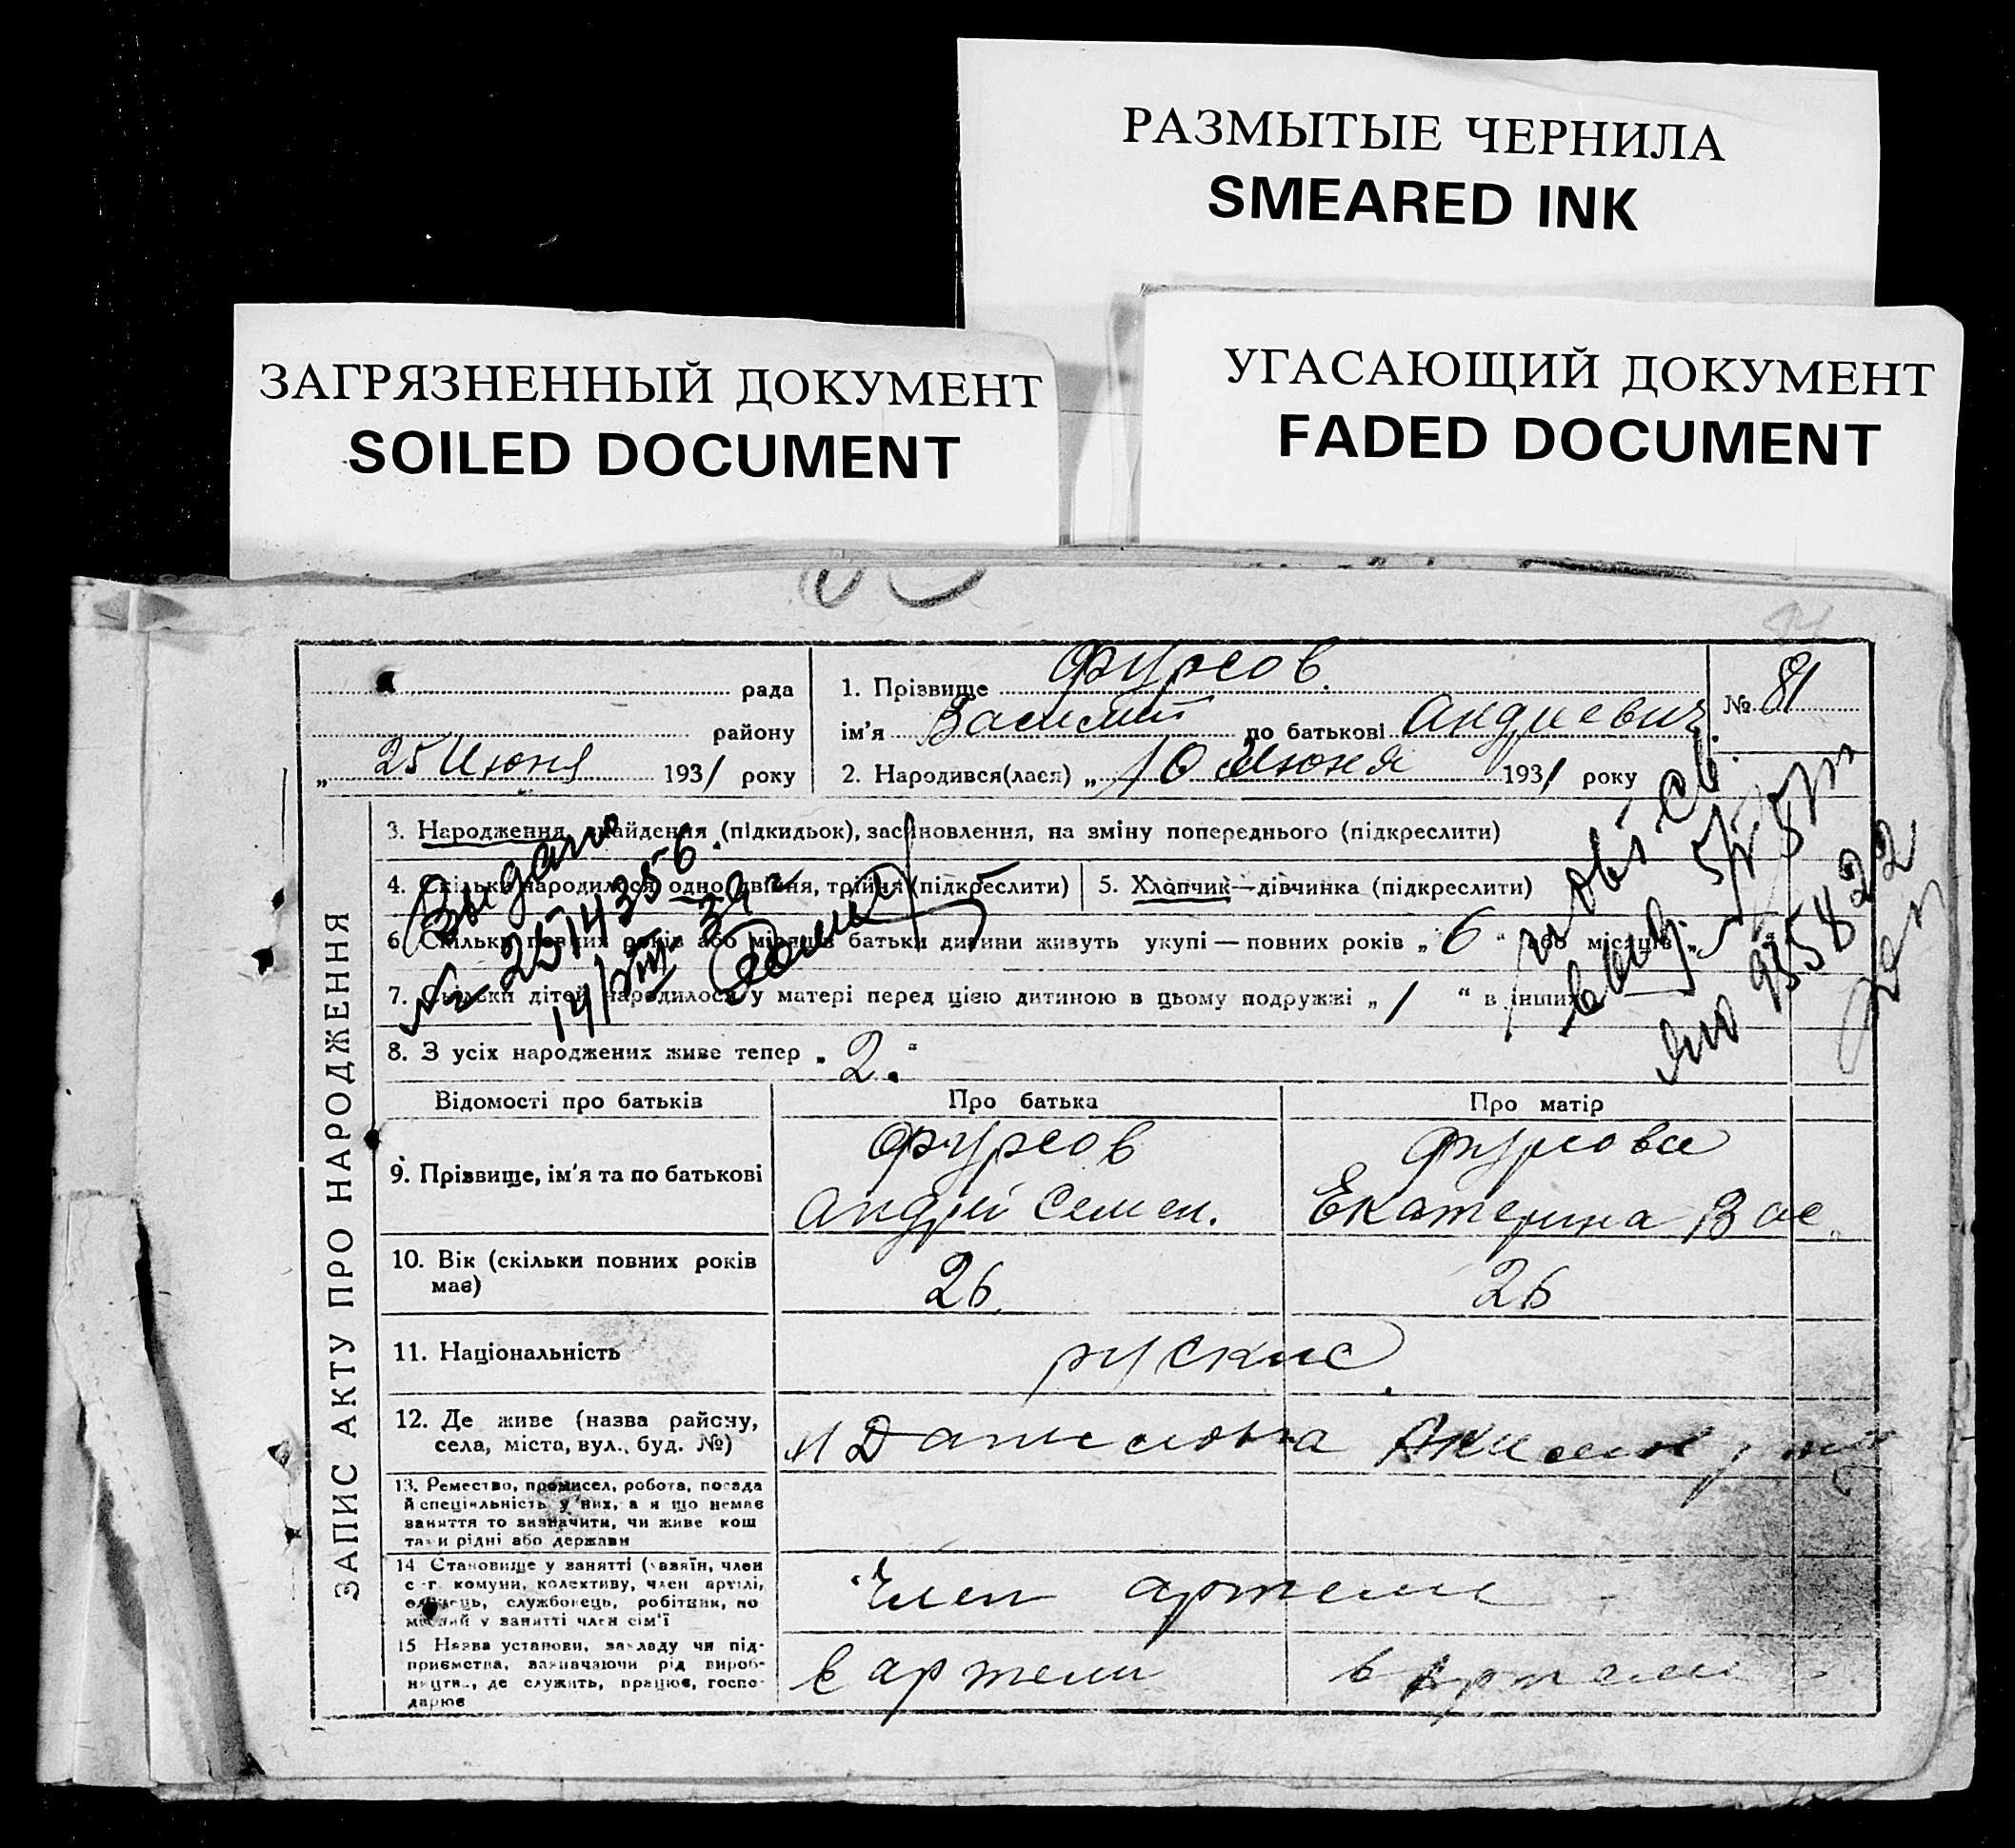 РАЗМЫТЫЕ ЧЕРНИЛА
SMEARED INK
ЗАГРЯЗНЕННЫЙ ДОКУМЕНТ
SOILED DOCUMENT
УГАСАЮЩИЙ ДОКУМЕНТ
FADED DOCUMENT
ЗАПИС АКТУ ПРО НАРОДЖЕННЯ
рада
району
„ 25 Июня 1931 року
1. Прізвище Фурсов
ім'я Василий по батькові Андреевич
2. Народився(лася) „ 10 Июня 1931 року
№ 81
3. Народження, знайдення (підкидьок), всиновлення, на зміну попереднього (підкреслити)
4. Скільки народилося одно, двійня, трійня (підкреслити)
5. Хлопчик—дівчинка (підкреслити)
6. Скільки повних років або місяців батьки дитини живуть укупі — повних років „ 6 “ або місяців „
7. Скільки дітей народилося у матері перед цією дитиною в цьому подружжі „ 1 “ в інших
8. З усіх народжених живе тепер „ 2. “
Выдано
№ 2514356.
14/VIII 39 г
5/V 57г
Відомості про батьків
Про батька
Про матір
9. Прізвище, ім'я та по батькові
Фурсов
Андрій Семен.
Фурсова
Екатерина Вас.
10. Вік (скільки повних років має)
26
26
11. Національність
руские
12. Де живе (назва району,
села, міста, вул., буд. №)
Даниловка
13. Ремество, промисел, робота, посада
й спеціяльність у них, а я що немає
заняття то визначити, чи живе кош
тами рідні або держави
14 Становище у занятті (хазяїн, член
с-г. комуни, колективу, член артілі,
одинець, службовець, робітник, по
мічний у занятті член сім'ї
Член артели
15 Назва установи, закладу чи під-
приємства, зазначаючи рід вироб-
ництв., де служить, працює, госпо-
дарює
в артели
в артели